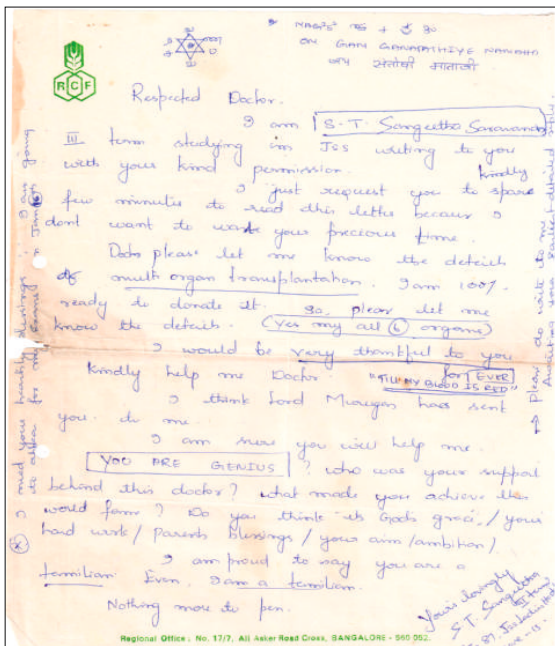 NAGIS
OM GAM GANAPATHIYE NAMAHA
जय संतोषी माताजी
RCF
Respected Doctor.
I am S.T. Sangeetha Saravanan
III term studying in JSS writing to you
with your kind permission. kindly
I just request you to spare
few minutes to read this letter because I
dont want to waste your precious time.
Doctor please let me know the details
of multi organ transplantation. I am 100%
ready to donate it. So, please let me
know the details. (Yes my all 6 organs)
I would be very thankful to you
for EVER
Kindly help me Doctor. "TILL MY BLOOD IS RED"
I think Lord Murugan has sent
you to me.
I am sure you will help me.
YOU ARE GENIUS ? who was your support
behind this doctor? what made you achieve this
world fame? Do you think its Gods grace / your
hard work / parents blessings / your aim / ambition /.
I am proud to say you are a
tamilian. Even, I am a tamilian.
Nothing more to pen.
Yours lovingly
S.T. Sangeetha
II term
I need your hearty blessings. I am going
to appear for my exams in Jan
Please do write to me
Regional Office : No. 17/7, Ali Asker Road Cross, BANGALORE - 560 052.